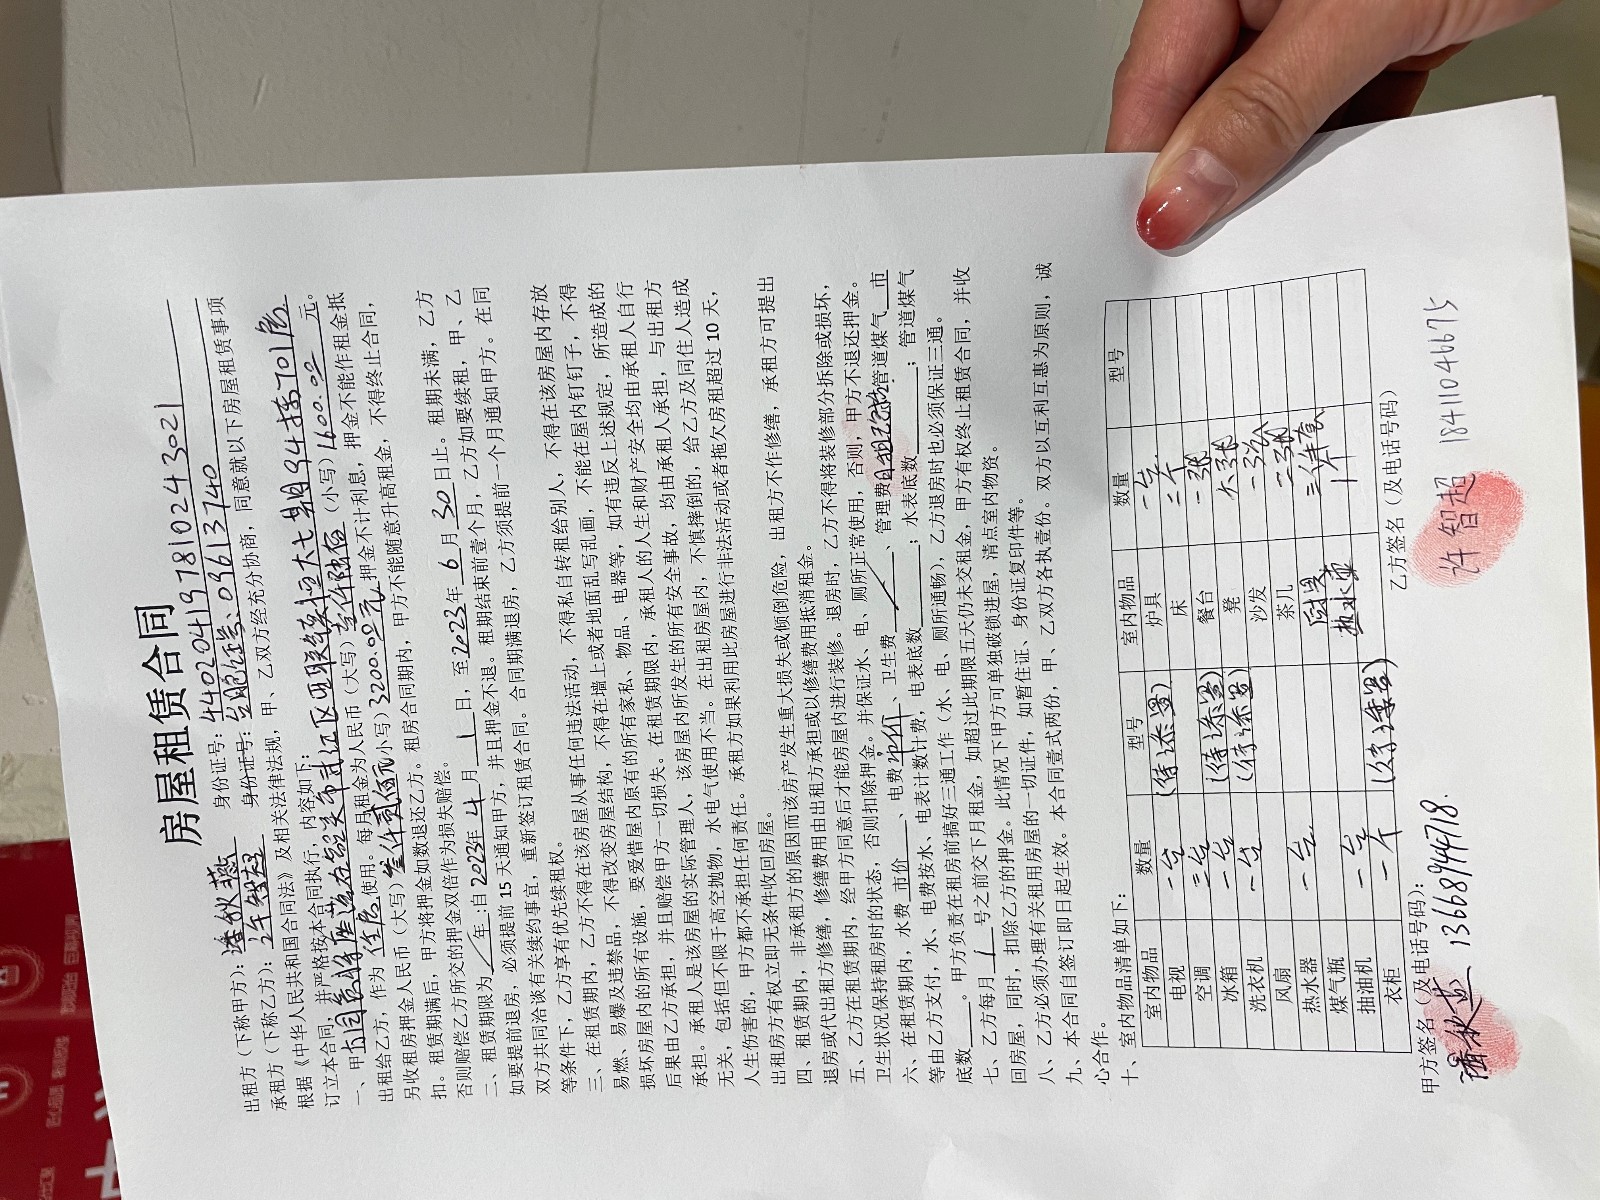 房屋租赁合同
出租方（下称甲方）：潘秋燕 身份证号：440204197810243021
承租方（下称乙方）：许智超 身份证号：台胞证号：03613740
根据《中华人民共和国合同法》及相关法律法规，甲、乙双方经充分协商，同意就以下房屋租赁事项
订立本合同，并严格按本合同执行，内容如下：
一、甲方同意将座落在韶关市武江区西联镇恒大七期94栋701房
出租给乙方，作为 住房 使用。每月租金为人民币（大写）壹仟陆佰（小写）1600.00 元。
另收租房押金人民币（大写）叁仟贰佰元（小写）3200.00元，押金不计利息，押金不能作租金抵
扣。租赁期满后，甲方将押金如数退还乙方。租房合同期内，甲方不能随意升高租金，不得终止合同，
否则赔偿乙方所交的押金双倍作为损失赔偿。
二、租赁期限为 / 年：自2023年4月1日，至2023年6月30日止。租期未满，乙方
如要提前退房，必须提前15天通知甲方，并且押金不退。租期结束前壹个月，乙方如要续租，甲、乙
双方共同洽谈有关续约事宜，重新签订租赁合同。合同期满退房，乙方须提前一个月通知甲方。在同
等条件下，乙方享有优先续租权。
三、在租赁期内，乙方不得在该房屋从事任何违法活动，不得私自转租给别人，不得在该房屋内存放
易燃、易爆及违禁品，不得改变房屋结构，不得在墙上或者地面乱写乱画，不能在屋内钉钉子，不得
损坏房屋内的所有设施，要爱惜屋内原有的所有家私、物品、电器等，如有违反上述规定，所造成的
后果由乙方承担，并且赔偿甲方一切损失。在租赁期限内，承租人的人生和财产安全均由承租人自行
承担。承租人是该房屋的实际管理人，该房屋内所发生的所有安全事故，均由承租人承担，与出租方
无关，包括但不限于高空抛物，水电气使用不当。在出租房屋内，不慎摔倒的，给乙方及同住人造成
人生伤害的，甲方都不承担任何责任。承租方如果利用此房屋进行非法活动或者拖欠房租超过10天，
出租房方有权立即无条件收回房屋。
四、租赁期内，非承租方的原因而该房产发生重大损失或倾倒危险，出租方不作修缮，承租方可提出
退房或代出租方修缮，修缮费用由出租方承担或以修缮费用抵消租金。
五、乙方在租赁期内，经甲方同意后才能房屋内进行装修。退房时，乙方不得将装修部分拆除或损坏，
卫生状况保持租房时的状态，否则扣除押金。并保证水、电、厕所正常使用，否则，甲方不退还押金。
六、在租赁期内，水费 市价 、电费 市价 、卫生费 / 、管理费 管道煤气 市
等由乙方支付，水、电费按水、电表计数计费，电表底数 ；水表底数 ；管道煤气
底数 。甲方负责在租房前搞好三通工作（水、电、厕所通畅），乙方退房时也必须保证三通。
七、乙方每月 1 号之前交下月租金，如超过此期限五天仍未交租金，甲方有权终止租赁合同，并收
回房屋，同时，扣除乙方的押金。此情况下甲方可单独破锁进屋，清点室内物资。
八、乙方必须办理有关租用房屋的一切证件，如暂住证、身份证复印件等。
九、本合同自签订即日起生效。本合同壹式两份，甲、乙双方各执壹份。双方以互利互惠为原则，诚
心合作。
十、室内物品清单如下：
室内物品 数量 型号 室内物品 数量 型号
电视 一台 （待添置） 炉具 一台
空调 三台 床 二个
冰箱 一台 （待添置） 餐台 一张
洗衣机 一台 （待添置） 凳 六张
风扇 沙发
热水器 一台 茶几
煤气瓶 窗帘 三件套
抽油机 一台 热水壶 1个
衣柜 一个
甲方签名（及电话号码）： 乙方签名（及电话号码）
潘秋燕 13668944718. 许智超 18411046675